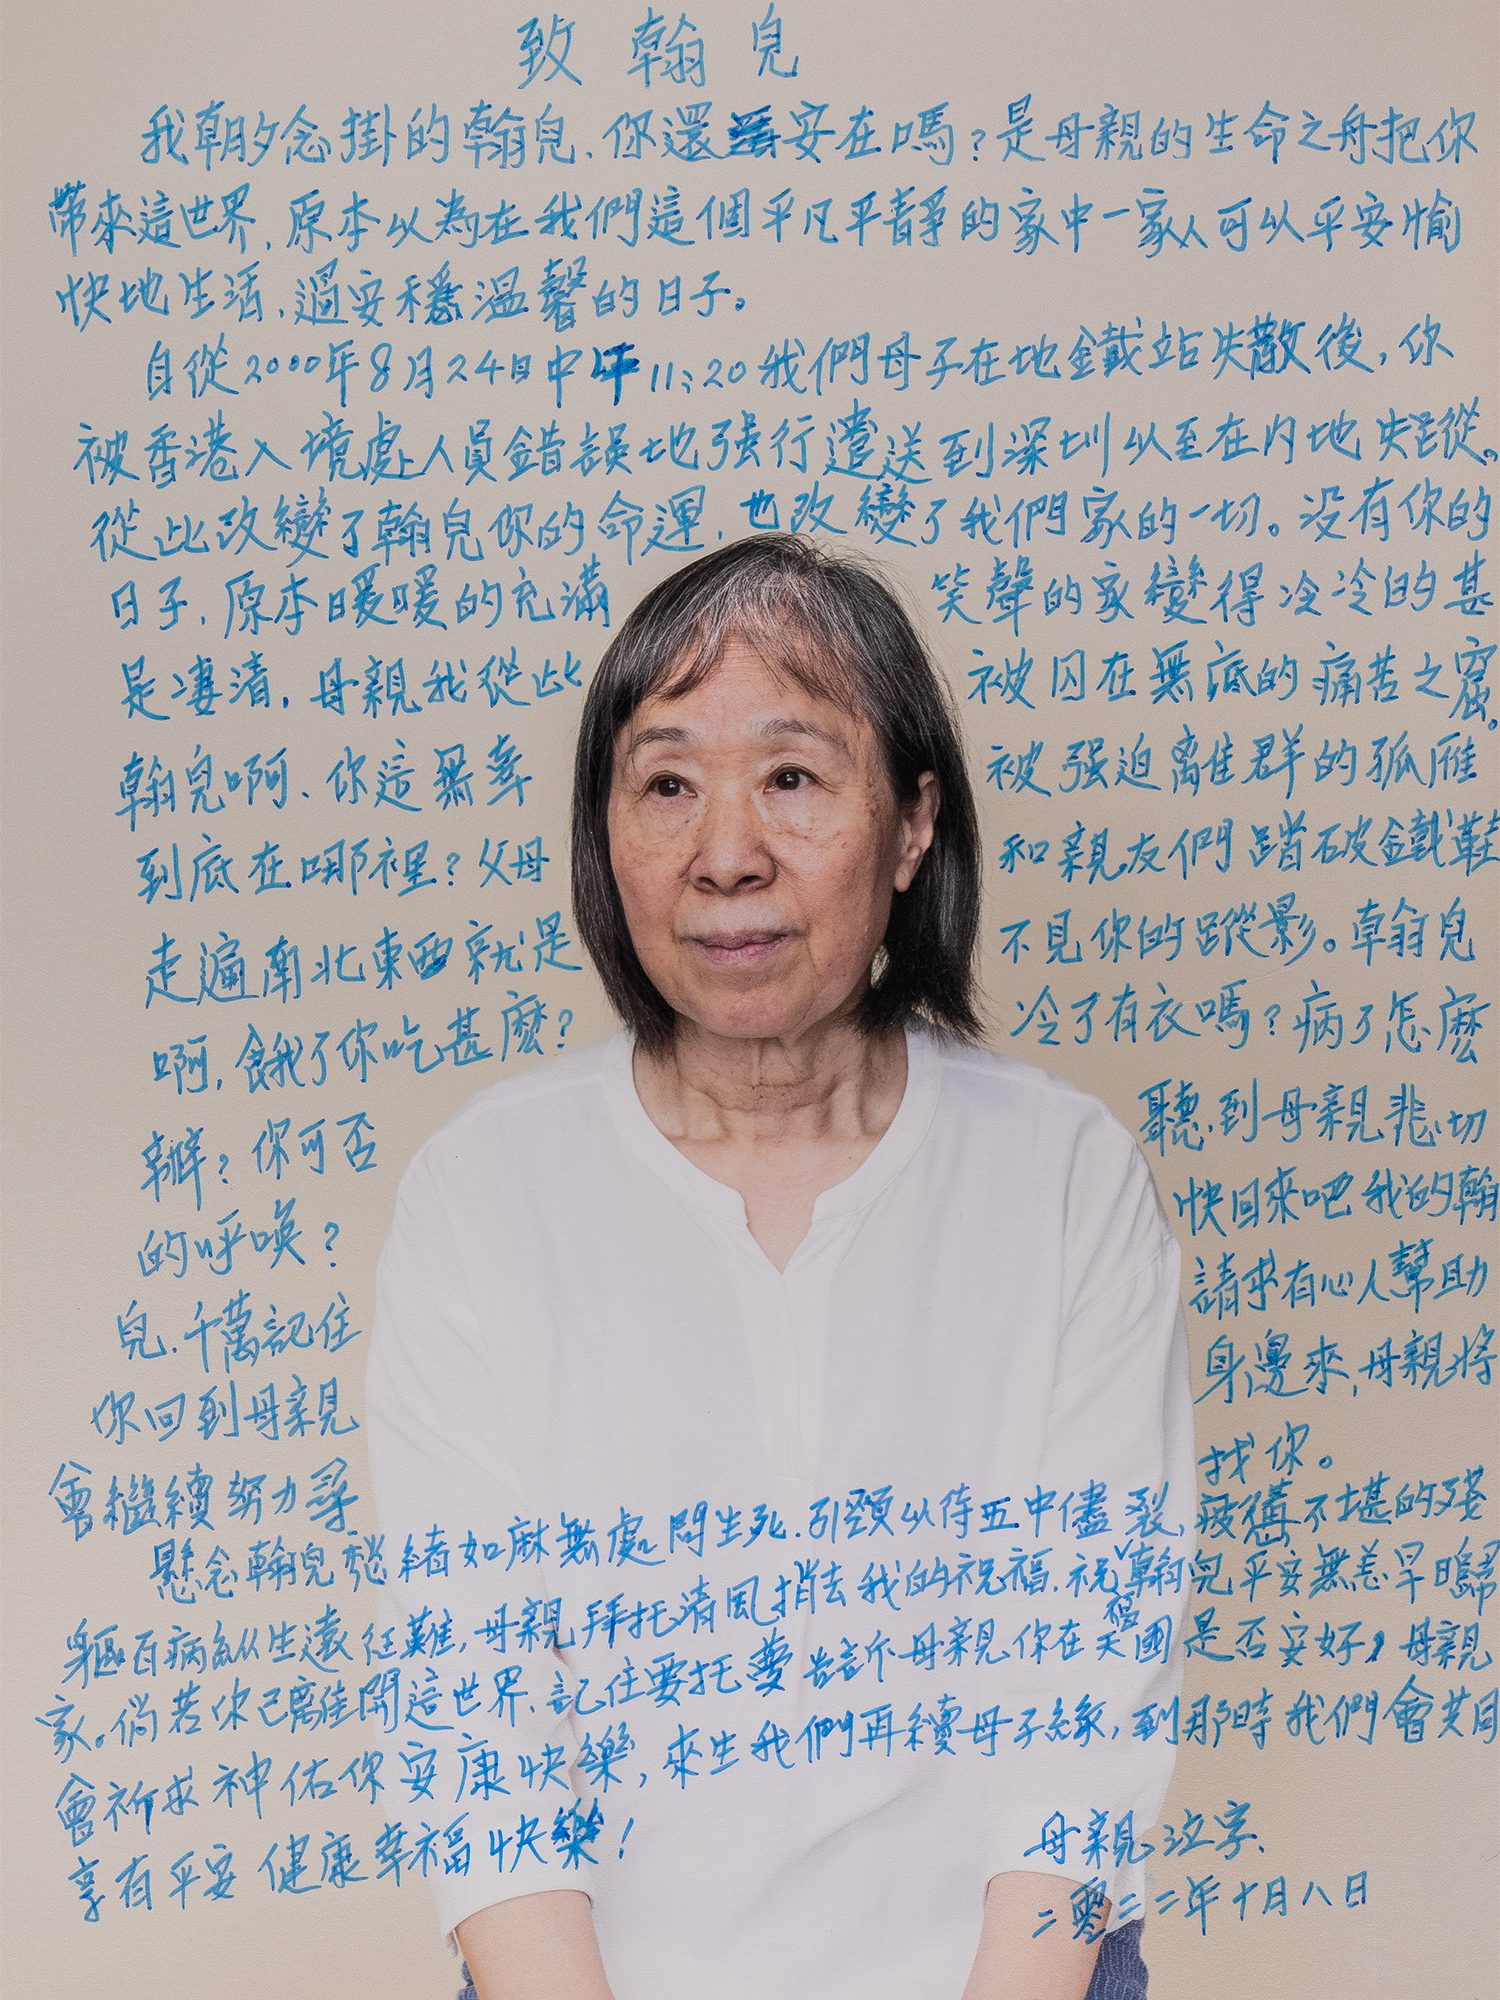 致翰兒
我朝夕念掛的翰兒、你還安在嗎？是母親的生命之舟把你
帶來這世界，原本以為在我們這個平凡平靜的家中一家人可以平安愉
快地生活，過安穩溫馨的日子。
自從2000年8月24日中午11:20我們母子在地鐵站失散後，你
被香港入境處人員錯誤地强行遣送到深圳以至在内地失蹤。
從此改變了翰兒你的命運，也改變了我們家的一切。没有你的
日子，原本暖暖的充滿笑聲的家變得冷冷的甚
是凄清，母親我從此被囚在無底的痛苦之窟。
翰兒啊、你這無辜被强迫離群的孤雁
到底在哪裡？父母和親友們踏破鐵鞋
走遍南北東西就是不見你的蹤影。翰兒
啊，餓了你吃甚麼？冷了有衣嗎？病了怎麼
辦？你可否聽到母親悲切
的呼喚？快回來吧我的翰
兒、千萬記住請求有心人幫助
你回到母親身邊來，母親將
會繼續努力尋找你。
懸念翰兒愁緒如麻無處問生死、引頸以待五中儘裂，疲憊不堪的殘
軀百病纵生遠征難，母親拜托清風捎去我的祝福、祝翰兒平安無恙早日歸
家。倘若你已離開這世界、記住要托夢告訴母親你在天國是否安好，母親
會祈求神佑你安康快樂，來生我們再續母子緣，到那時我們會共同
享有平安健康幸福快樂！
母親泣字、
二零二二年十月八日